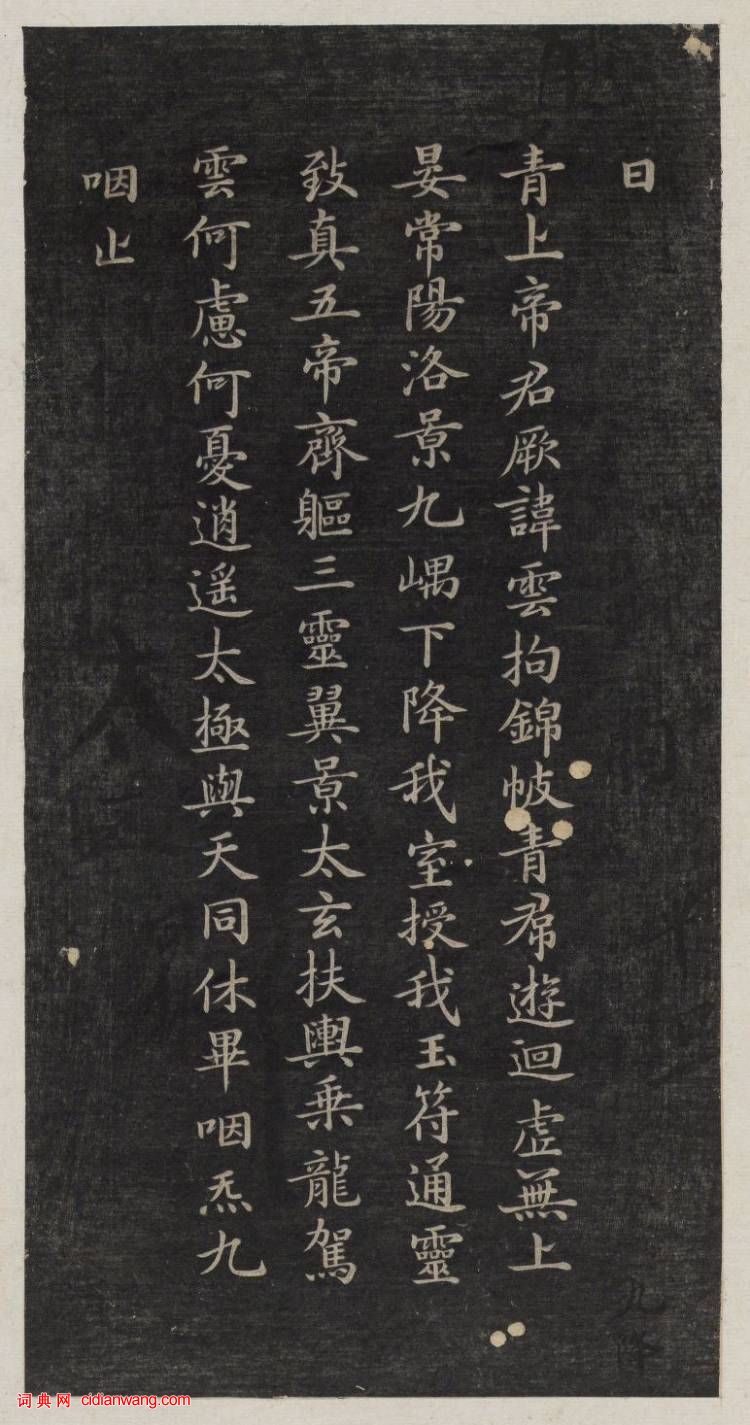 曰
青上帝君厥諱雲拘錦帔青帬遊迴虛無上
晏常陽洛景九嵎下降我室授我玉符通靈
致真五帝齊軀三靈翼景太玄扶輿乗龍駕
雲何慮何憂逍遙太極與天同休畢咽炁九
咽止
词典网 cidianwang.com